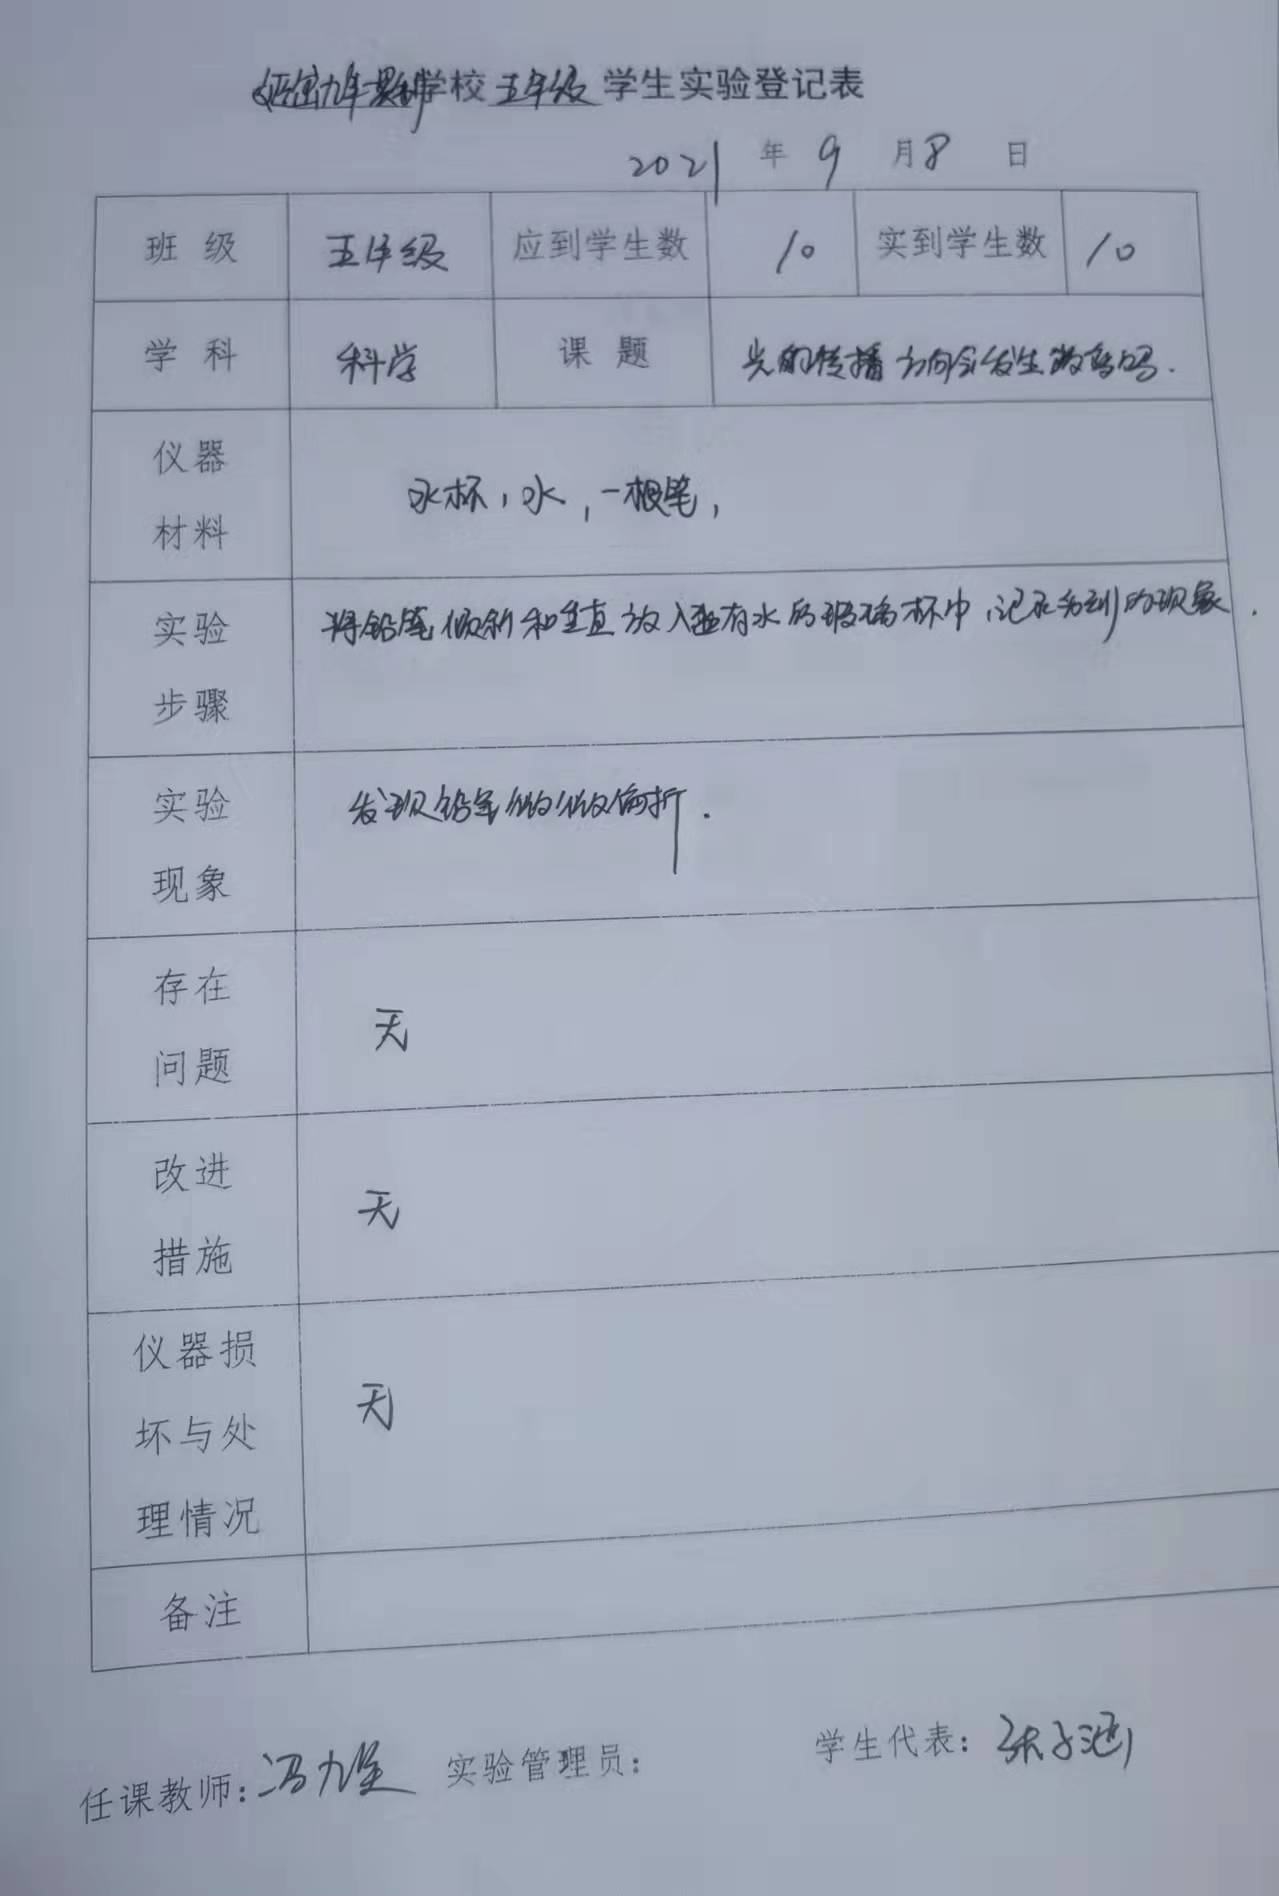 九年一贯制学校 五年级 学生实验登记表
2021 年 9 月 8 日
班 级 五年级 应到学生数 10 实到学生数 10
学 科 科学 课 题 光的传播方向会发生改变吗.
仪器
材料
水杯, 水, 一根笔,
实验
步骤
将铅笔倾斜和垂直放入盛有水的玻璃杯中,记录看到的现象.
实验
现象
发现铅笔微微偏折.
存在
问题
无
改进
措施
无
仪器损
坏与处
理情况
无
备注
任课教师: 冯九 实验管理员: 学生代表: 张子涵